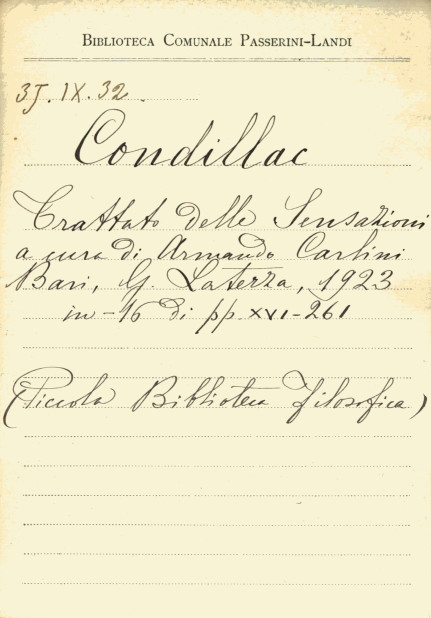 BIBLIOTECA COMUNALE PASSERINI-LANDI
3J. IX. 32.
Condillac
Trattato delle Sensazioni
a cura di Armando Carlini
Bari, G. Laterza, 1923
in-16 di pp. XVI-261
(Piccola Biblioteca filosofica)